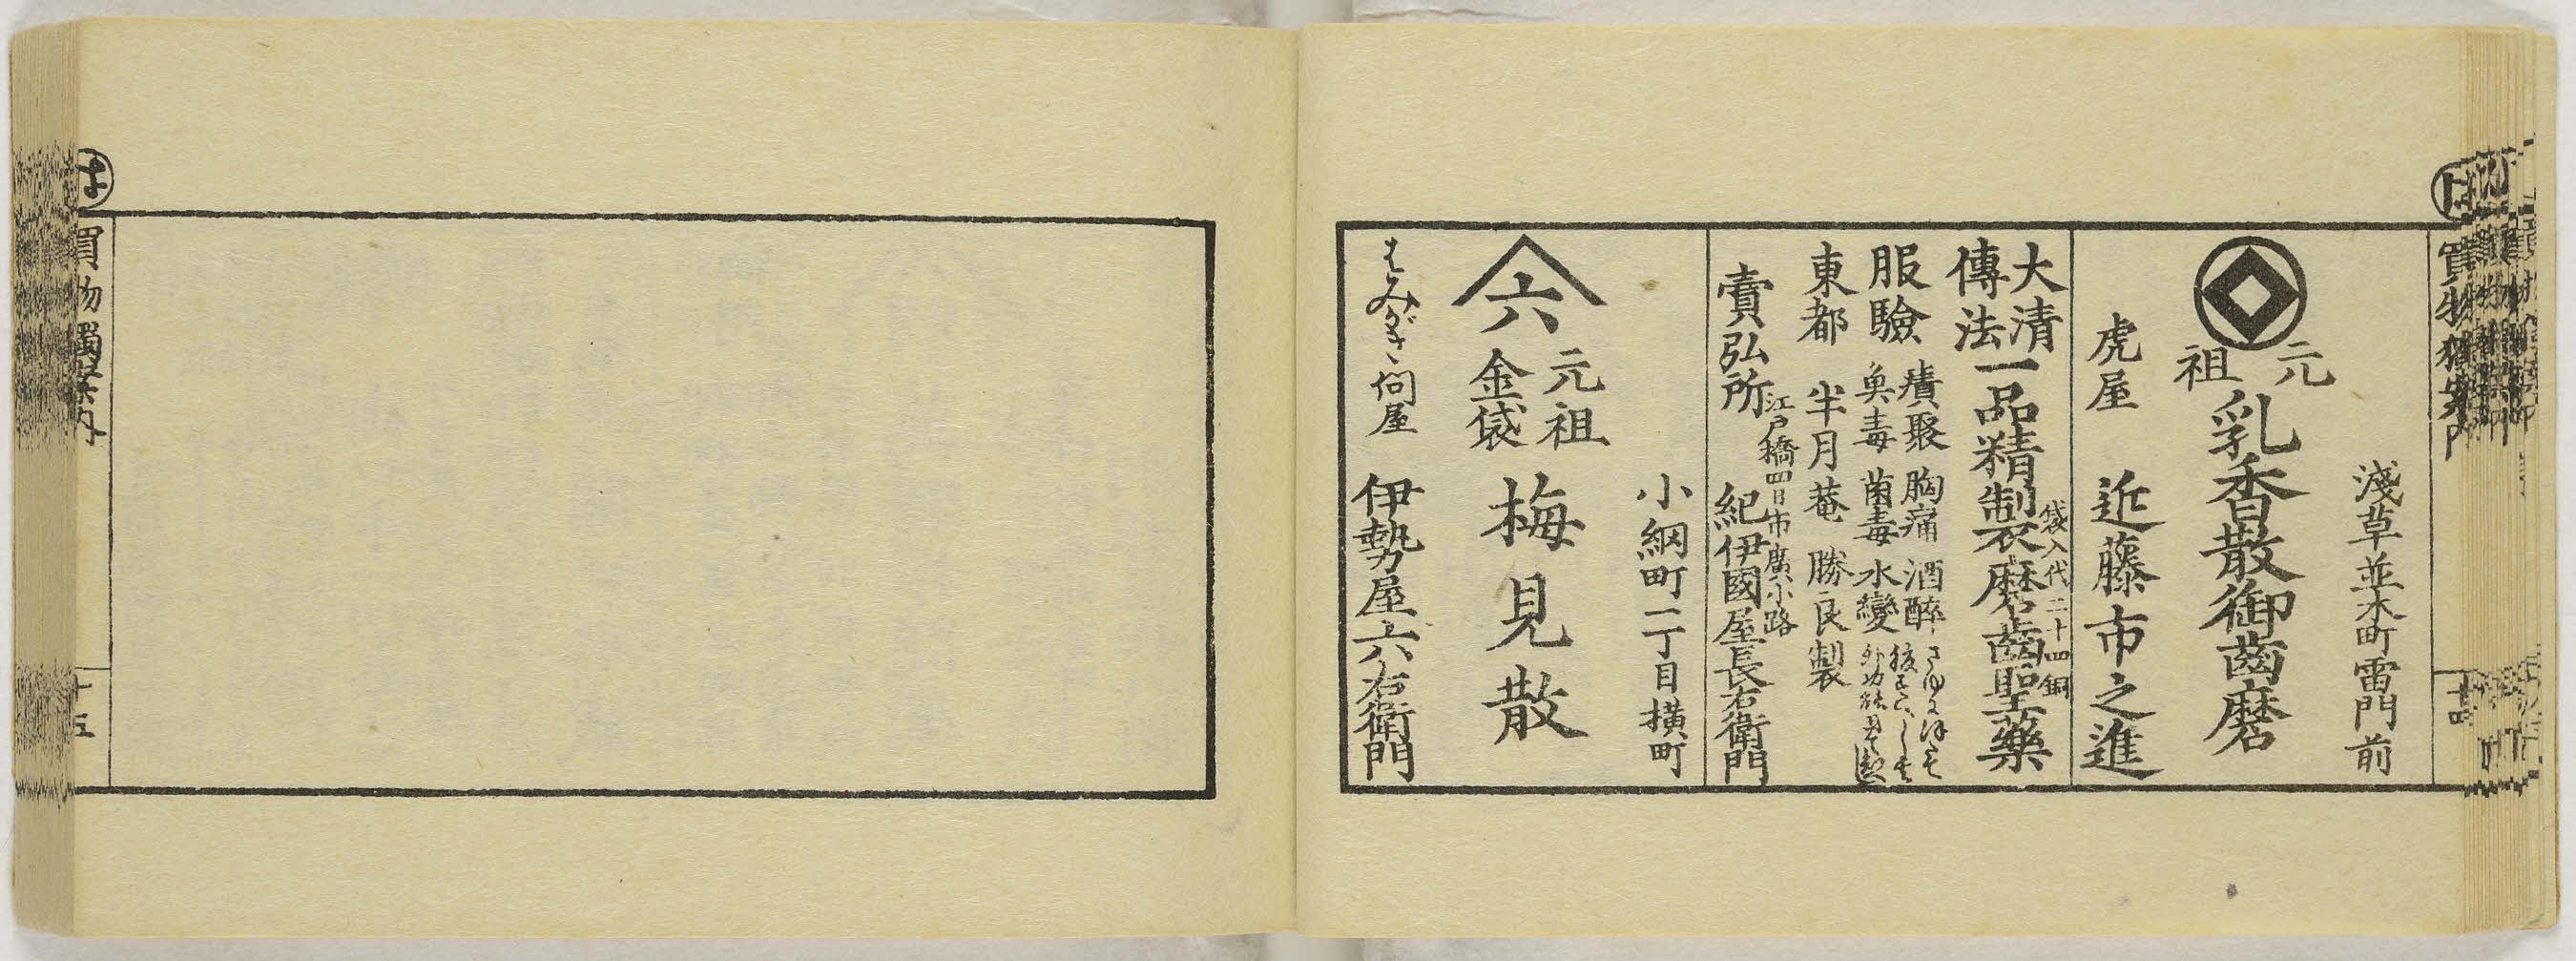 は
買物獨案内
十四
淺草並木町雷門前
元祖
乳香散御齒磨
虎屋 近藤市之進
大清傳法
一品精製磨齒聖藥
袋入代二十四銅
服驗
積聚 胸痛 酒醉
魚毒 菌毒 水變
東都 半月菴 勝良製
賣弘所
江戸橋四日市廣小路
紀伊國屋長右衛門
小網町二丁目横町
六
元祖
金袋
梅見散
はみがき問屋 伊勢屋六右衛門
は
買物獨案内
十五